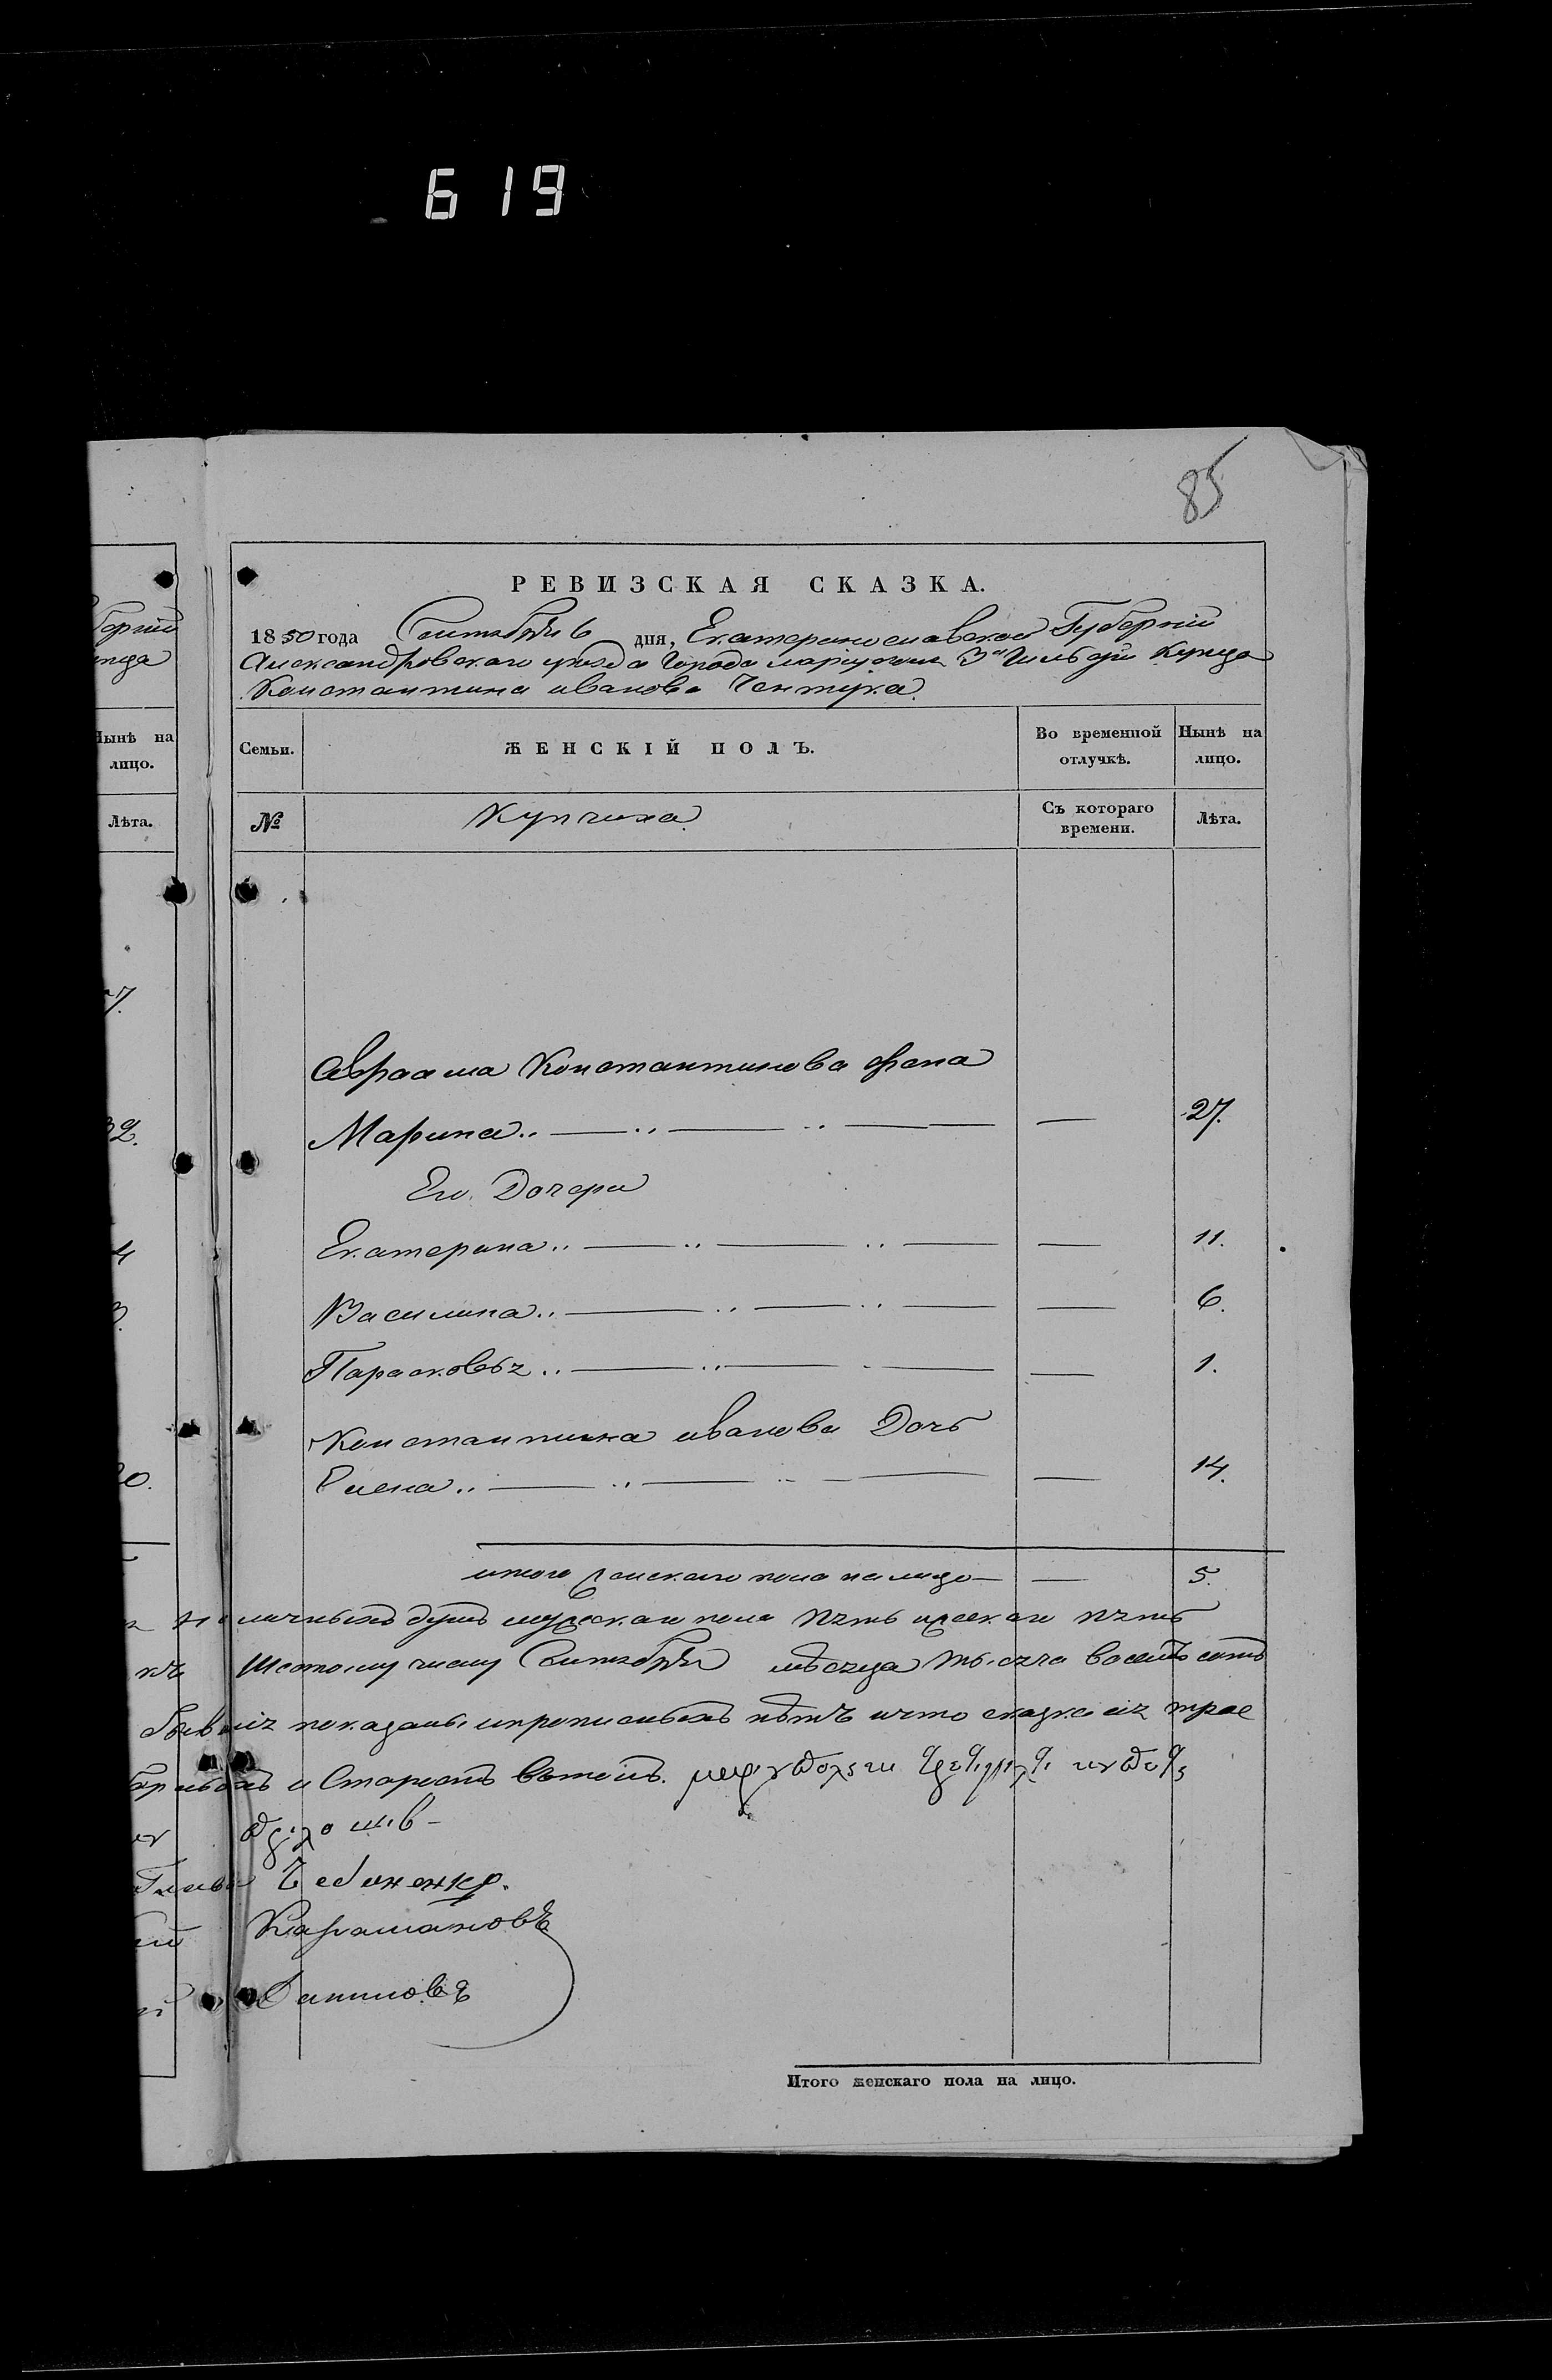 619
85
РЕВИЗСКАЯ СКАЗКА.
1850 года Сентября 6 дня, Екатеринославской Губерніи
Александровскаго уезда Города Мариуполя 3й Гильдіи Купца
Константина иванова Чентука
Нынѣ на лицо.
Лѣта.
Семьи.
ЖЕНСКІЙ ПОЛЪ.
Во временной отлучкѣ.
Нынѣ на лицо.
№
Купчиха
Съ котораго времени.
Лѣта.
Авраама Константинова жена
Марина.. — 27.
Его Дочери
Екатерина.. — 11.
Василина.. — 6.
Парасковья.. — 1.
Константина иванова Дочь
Елена.. — 14.
итого женскаго пола на лицо — 5.
наличныхъ душъ мужескаго пола пять женскаго пять
Шестому числу Сентября мѣсяца тысяча восемь сотъ
показаны и прописныхъ нѣтъ и что сказка сія
и Старостъ
Чебаненко.
Карамановъ
Даниловъ
Итого женскаго пола на лицо.